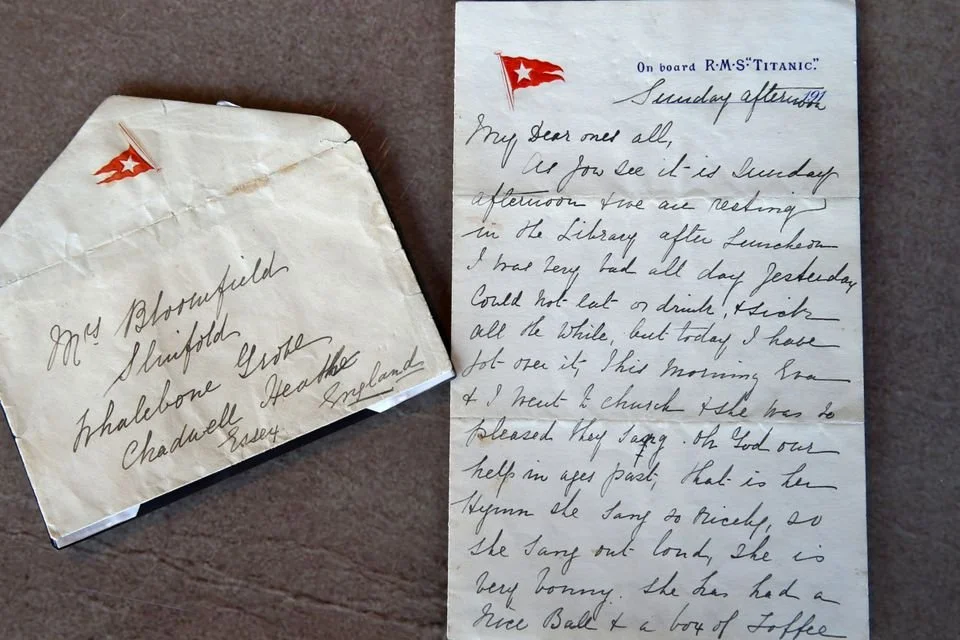 Mrs Bloomfield
Slinfold
Whalebone Grove
Chadwell Heathe
Essex
England
On board R·M·S "TITANIC."
191
Sunday afternoon
My Dear ones all,
As you see it is Sunday
afternoon & we are resting
in the Library after Luncheon
I was very bad all day yesterday
Could not eat or drink, & sick
all the while, but today I have
got over it, This Morning Eva
& I went to church & she was so
pleased they sang. Oh God our
help in ages past, that is her
Hymn she sang so nicely, so
she sang out loud, she is
very bonny. She has had a
Nice Ball & a box of Toffee